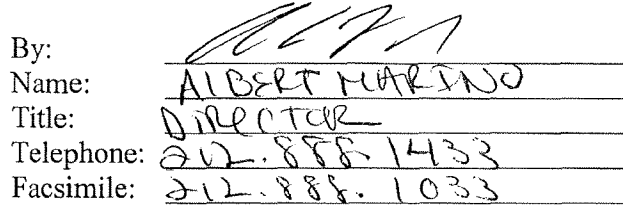 By:
Name: ALBERT MARINO
Title: DIRECTOR
Telephone: 212.888.1433
Facsimile: 212.888.1033